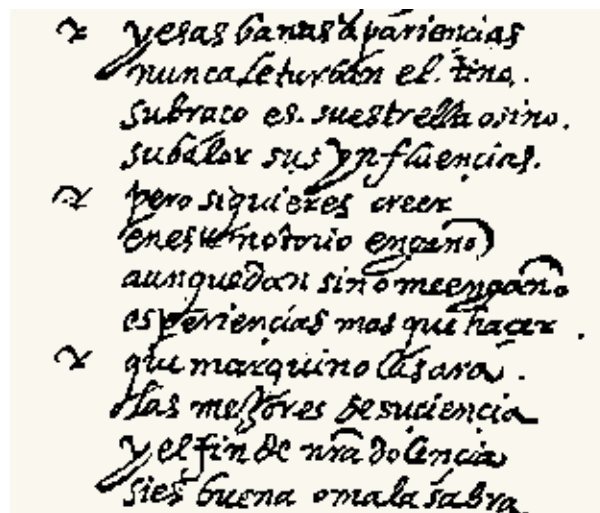 yesas banas apariencias
nunca le turban el tino.
su braço es su estrella o sino.
su balor sus ynfluencias.
pero si quieres creer
en este notorio engaño
aun quedan si no me engaño
esperiencias mas que hacer.
que marquino las ara.
las mejores de su ciencia
y el fin de nra dolencia
si es buena o mala sabra